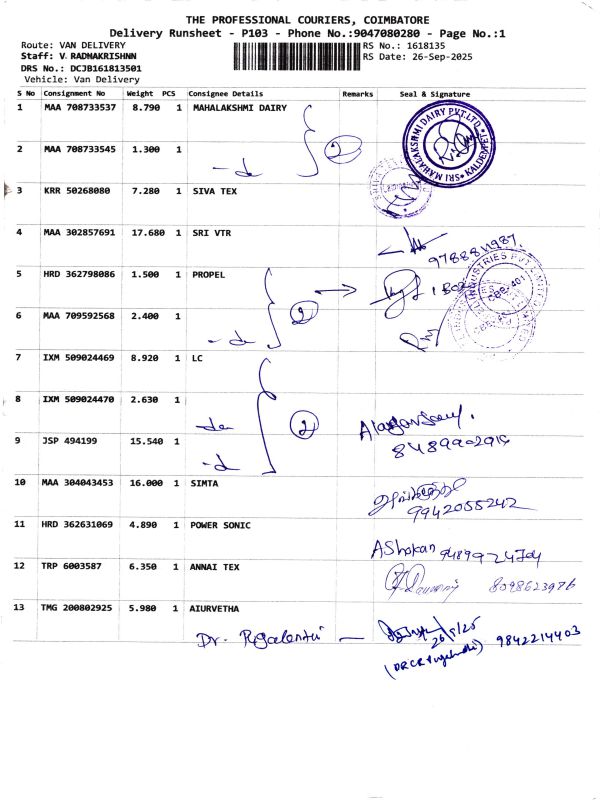 THE PROFESSIONAL COURIERS, COIMBATORE
Delivery Runsheet - P103 - Phone No.:9047080280 - Page No.:1
Route: VAN DELIVERY RS No.: 1618135
Staff: V. RADHAKRISHNN RS Date: 26-Sep-2025
DRS No.: DCJB161813501
Vehicle: Van Delivery
S No Consignment No Weight PCS Consignee Details Remarks Seal & Signature
1 MAA 708733537 8.790 1 MAHALAKSHMI DAIRY
SRI MAHALAKSHMI DAIRY PVT.LTD. KALDENPET
2 MAA 708733545 1.300 1 -do 2
3 KRR 50268080 7.280 1 SIVA TEX
4 MAA 302857691 17.680 1 SRI VTR
9788811987.
5 HRD 362798086 1.500 1 PROPEL
INDUSTRIES PVT LIMITED CBE-401
6 MAA 709592568 2.400 1 -do 2
7 IXM 509024469 8.920 1 LC
8 IXM 509024470 2.630 1 -do 2
9 JSP 494199 15.540 1 -do
8489902914
10 MAA 304043453 16.000 1 SIMTA
9942055242
11 HRD 362631069 4.890 1 POWER SONIC
AShokan
12 TRP 6003587 6.350 1 ANNAI TEX
8098623976
13 TMG 200802925 5.980 1 AIURVETHA
Dr. 26/9/25 9842214403